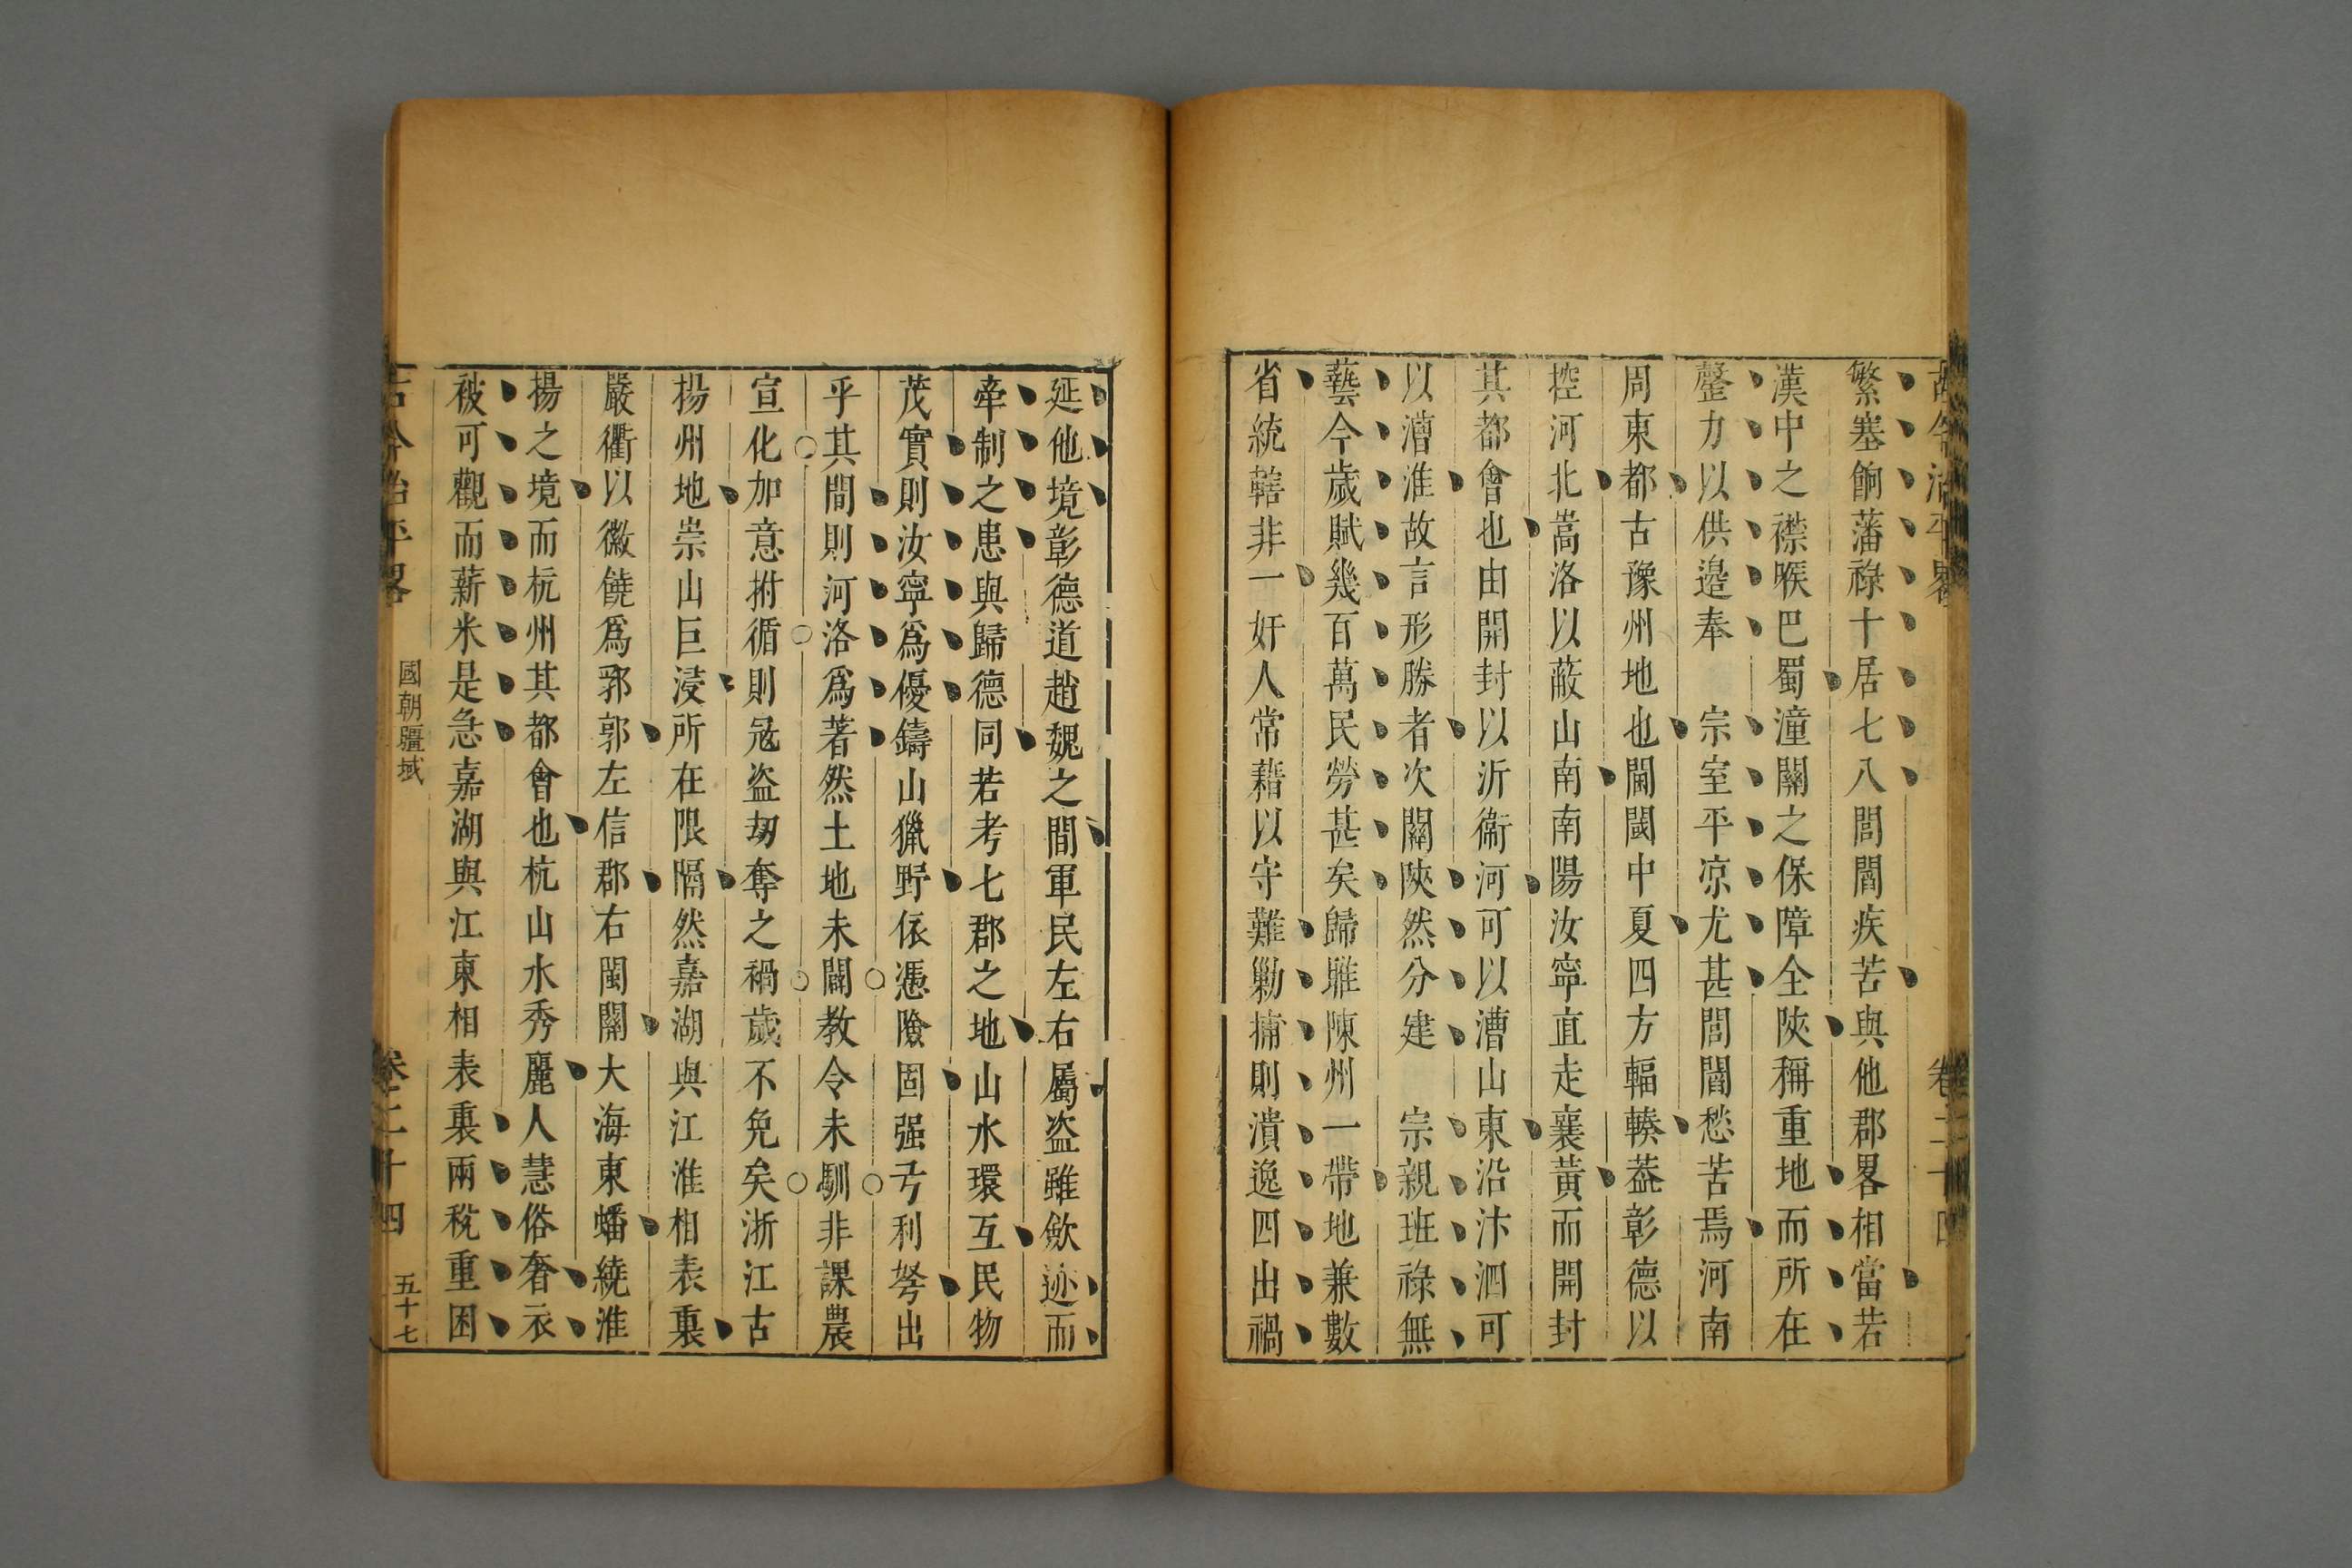 古今治平畧　卷二十四
繁塞餉藩祿十居七八閭閻疾苦與他郡畧相當若
漢中之襟喉巴蜀潼關之保障全陝稱重地而所在
罄力以供邉奉　宗室平凉尤甚閭閻愁苦焉河南
周東都古豫州地也閫閾中夏四方輻輳葢彰德以
控河北嵩洛以蔽山南南陽汝寧直走襄黃而開封
其都會也由開封以沂衞河可以漕山東沿汴泗可
以漕淮故言形勝者次關陝然分建　宗親班祿無
藝今歲賦幾百萬民勞甚矣歸睢陳州一帶地兼數
省統轄非一奸人常藉以守難勦捕則潰逸四出禍
延他境彰德道趙魏之間軍民左右屬盜雖歛迹而
牽制之患與歸德同若考七郡之地山水環互民物
茂實則汝寧爲優鑄山獵野依憑險固强弓利弩出
乎其間則河洛爲著然土地未闢教令未馴非課農
宣化加意拊循則冦盜刼奪之禍歲不免矣浙江古
揚州地崇山巨浸所在限隔然嘉湖與江淮相表裏
嚴衢以徽饒爲郛郭左信郡右閩關大海東蟠繞淮
揚之境而杭州其都會也杭山水秀麗人慧俗奢衣
被可觀而薪米是急嘉湖與江東相表裏兩稅重困
古今治平畧　國朝疆域　卷二十四　五十七